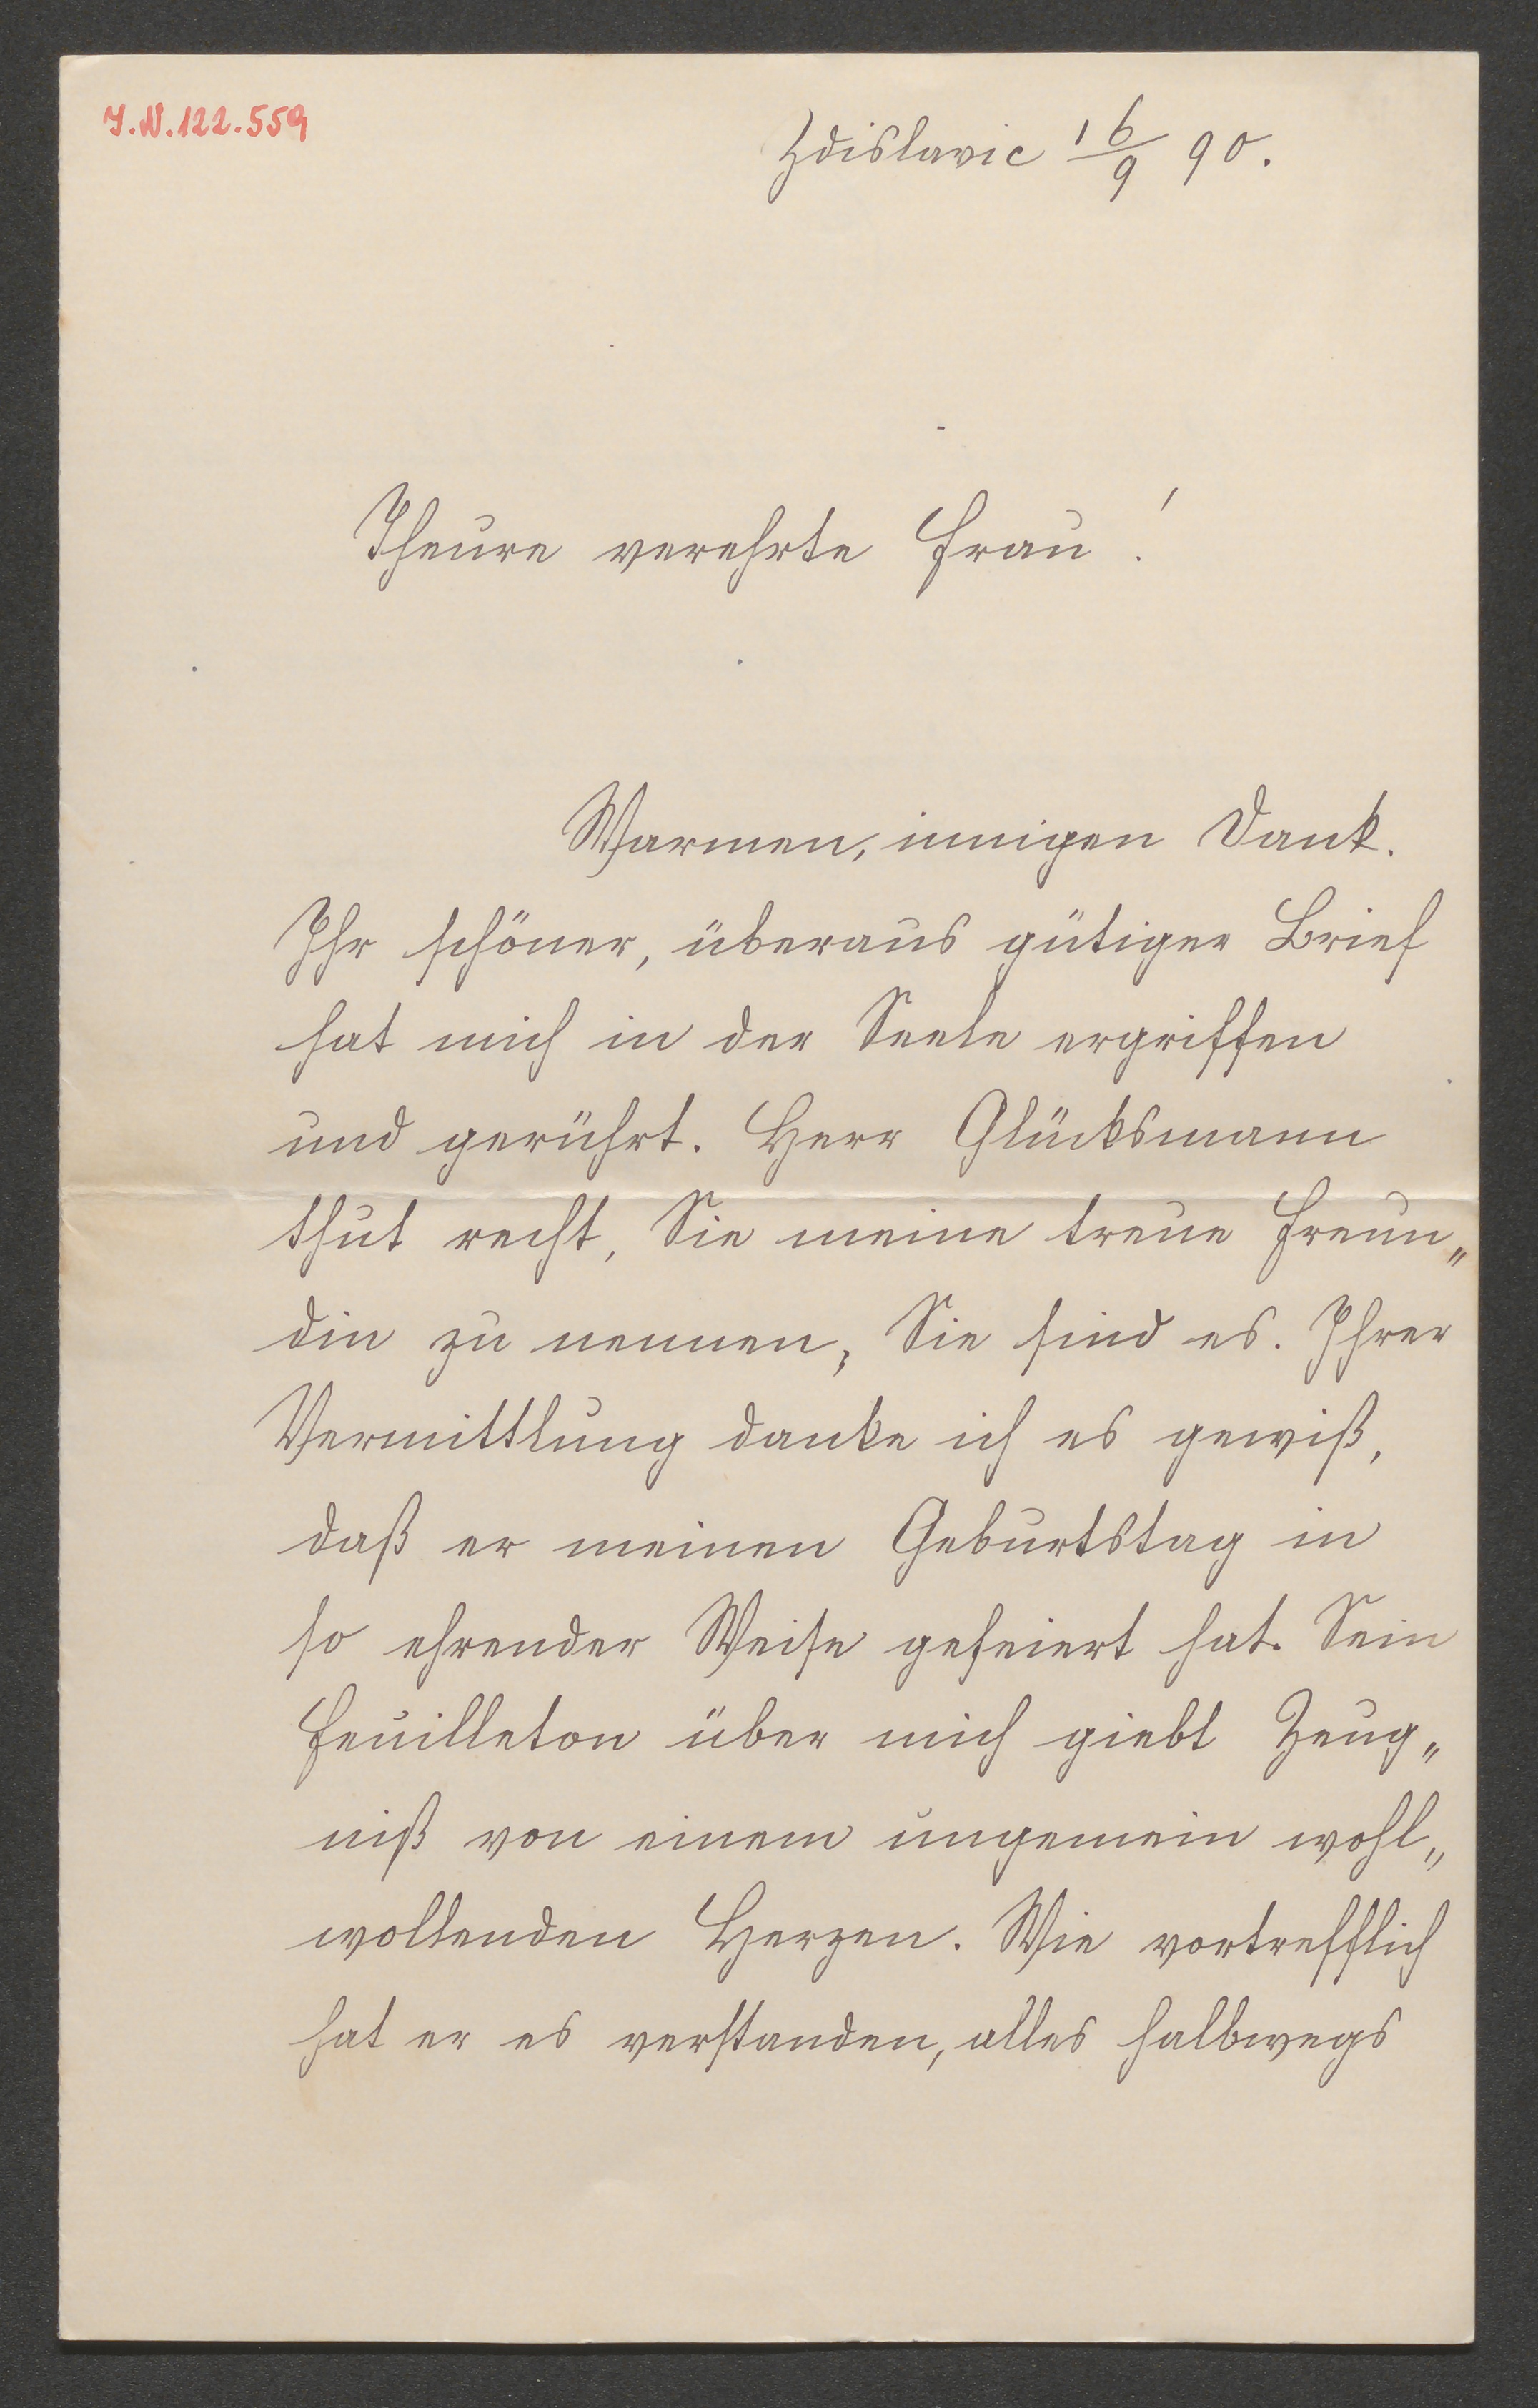 I.N.122.559
Zdislavic 16/9 90.
Theure verehrte Frau!
Warmen, innigen Dank.
Ihr schöner, überaus gütiger Brief
hat mich in der Seele ergriffen
und gerührt. Herr Glücksmann
thut recht, Sie meine treue Freun„
din zu nennen, Sie sind es. Ihrer
Vermittlung danke ich es gewiß,
daß er meinen Geburtstag in
so ehrender Weise gefeiert hat. Sein
Feuilleton über mich giebt Zeug„
niß von einem ungemein wohl„
wollenden Herzen. Wie vortrefflich
hat er es verstanden, alles halbwegs